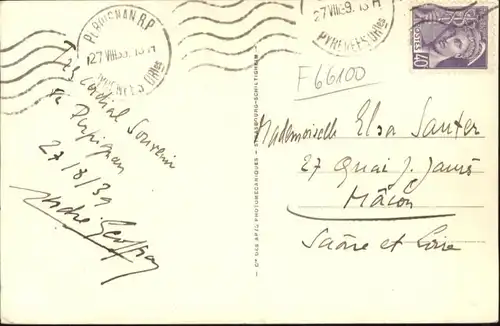 PERPIGNAN R.P.
27 VIII 39. 15 H
PYRENEES Ories
27 VIII 39. 15 H
PYRENEES Ories
POSTES
40
F 66100
Très cordial Souvenir
de Perpignan
27/8/39
André
Cie DES ARTS PHOTOMECANIQUES - STRASBOURG-SCHILTIGHEIM
Mademoiselle Elsa Sauter
27 Quai J. Jaurès
Mâcon
Saône et Loire